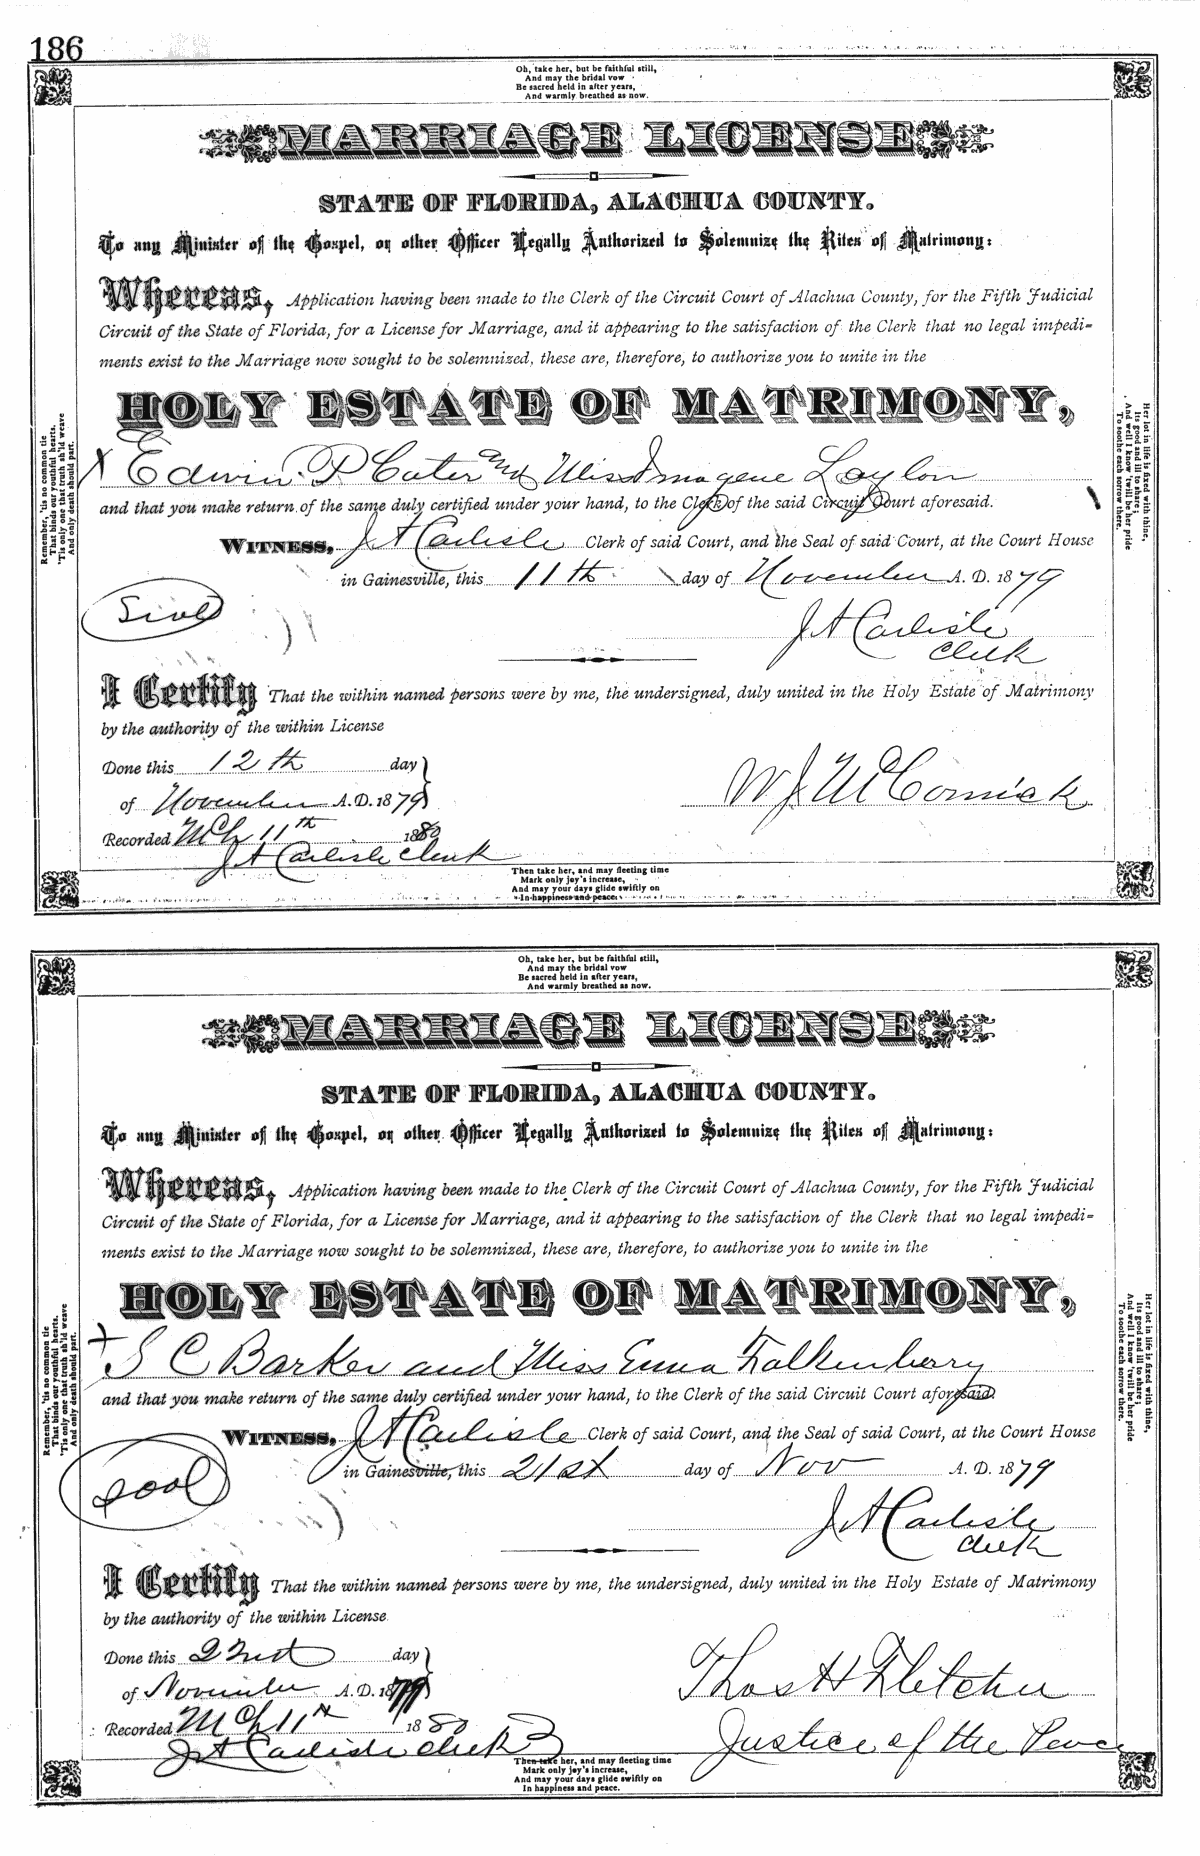 186
Oh, take her, but be faithful still,
And may the bridal vow
Be sacred held in after years,
And warmly breathed as now.
MARRIAGE LICENSE
STATE OF FLORIDA, ALACHUA COUNTY.
To any Minister of the Gospel, or other Officer Legally Authorized to Solemnize the Rites of Matrimony:
Whereas, Application having been made to the Clerk of the Circuit Court of Alachua County, for the Fifth Judicial
Circuit of the State of Florida, for a License for Marriage, and it appearing to the satisfaction of the Clerk that no legal impedi-
ments exist to the Marriage now sought to be solemnized, these are, therefore, to authorize you to unite in the
HOLY ESTATE OF MATRIMONY,
X Edwin P Cater and Miss Imogene Laylon
and that you make return of the same duly certified under your hand, to the Clerk of the said Circuit Court aforesaid.
WITNESS, J A Carlisle Clerk of said Court, and the Seal of said Court, at the Court House
in Gainesville, this 11th day of November A. D. 1879
J A Carlisle
Clerk
I Certify That the within named persons were by me, the undersigned, duly united in the Holy Estate of Matrimony
by the authority of the within License
Done this 12th day
of November A. D. 1879
W J McCormick
Recorded Mch 11th 1880
J A Carlisle Clerk
Remember, 'tis no common tie
That binds our youthful hearts.
'Tis only one that truth sh'ld weave
And only death should part.
Her lot in life is fixed with thine,
Its good and ill to share;
And well I know 'twill be her pride
To soothe each sorrow there.
Then take her, and may fleeting time
Mark only joy's increase,
And may your days glide swiftly on
In happiness and peace.
Oh, take her, but be faithful still,
And may the bridal vow
Be sacred held in after years,
And warmly breathed as now.
MARRIAGE LICENSE
STATE OF FLORIDA, ALACHUA COUNTY.
To any Minister of the Gospel, or other Officer Legally Authorized to Solemnize the Rites of Matrimony:
Whereas, Application having been made to the Clerk of the Circuit Court of Alachua County, for the Fifth Judicial
Circuit of the State of Florida, for a License for Marriage, and it appearing to the satisfaction of the Clerk that no legal impedi-
ments exist to the Marriage now sought to be solemnized, these are, therefore, to authorize you to unite in the
HOLY ESTATE OF MATRIMONY,
S C Barker and Miss Emma Falkenberry
and that you make return of the same duly certified under your hand, to the Clerk of the said Circuit Court aforesaid.
WITNESS, J A Carlisle Clerk of said Court, and the Seal of said Court, at the Court House
in Gainesville, this 21st day of Nov A. D. 1879
J A Carlisle
Clerk
I Certify That the within named persons were by me, the undersigned, duly united in the Holy Estate of Matrimony
by the authority of the within License
Done this 22nd day
of November A. D. 1879
Thos H Fletcher
Recorded Mch 11th 1880
Justice of the Peace
J A Carlisle Clerk
Remember, 'tis no common tie
That binds our youthful hearts.
'Tis only one that truth sh'ld weave
And only death should part.
Her lot in life is fixed with thine,
Its good and ill to share;
And well I know 'twill be her pride
To soothe each sorrow there.
Then take her, and may fleeting time
Mark only joy's increase,
And may your days glide swiftly on
In happiness and peace.